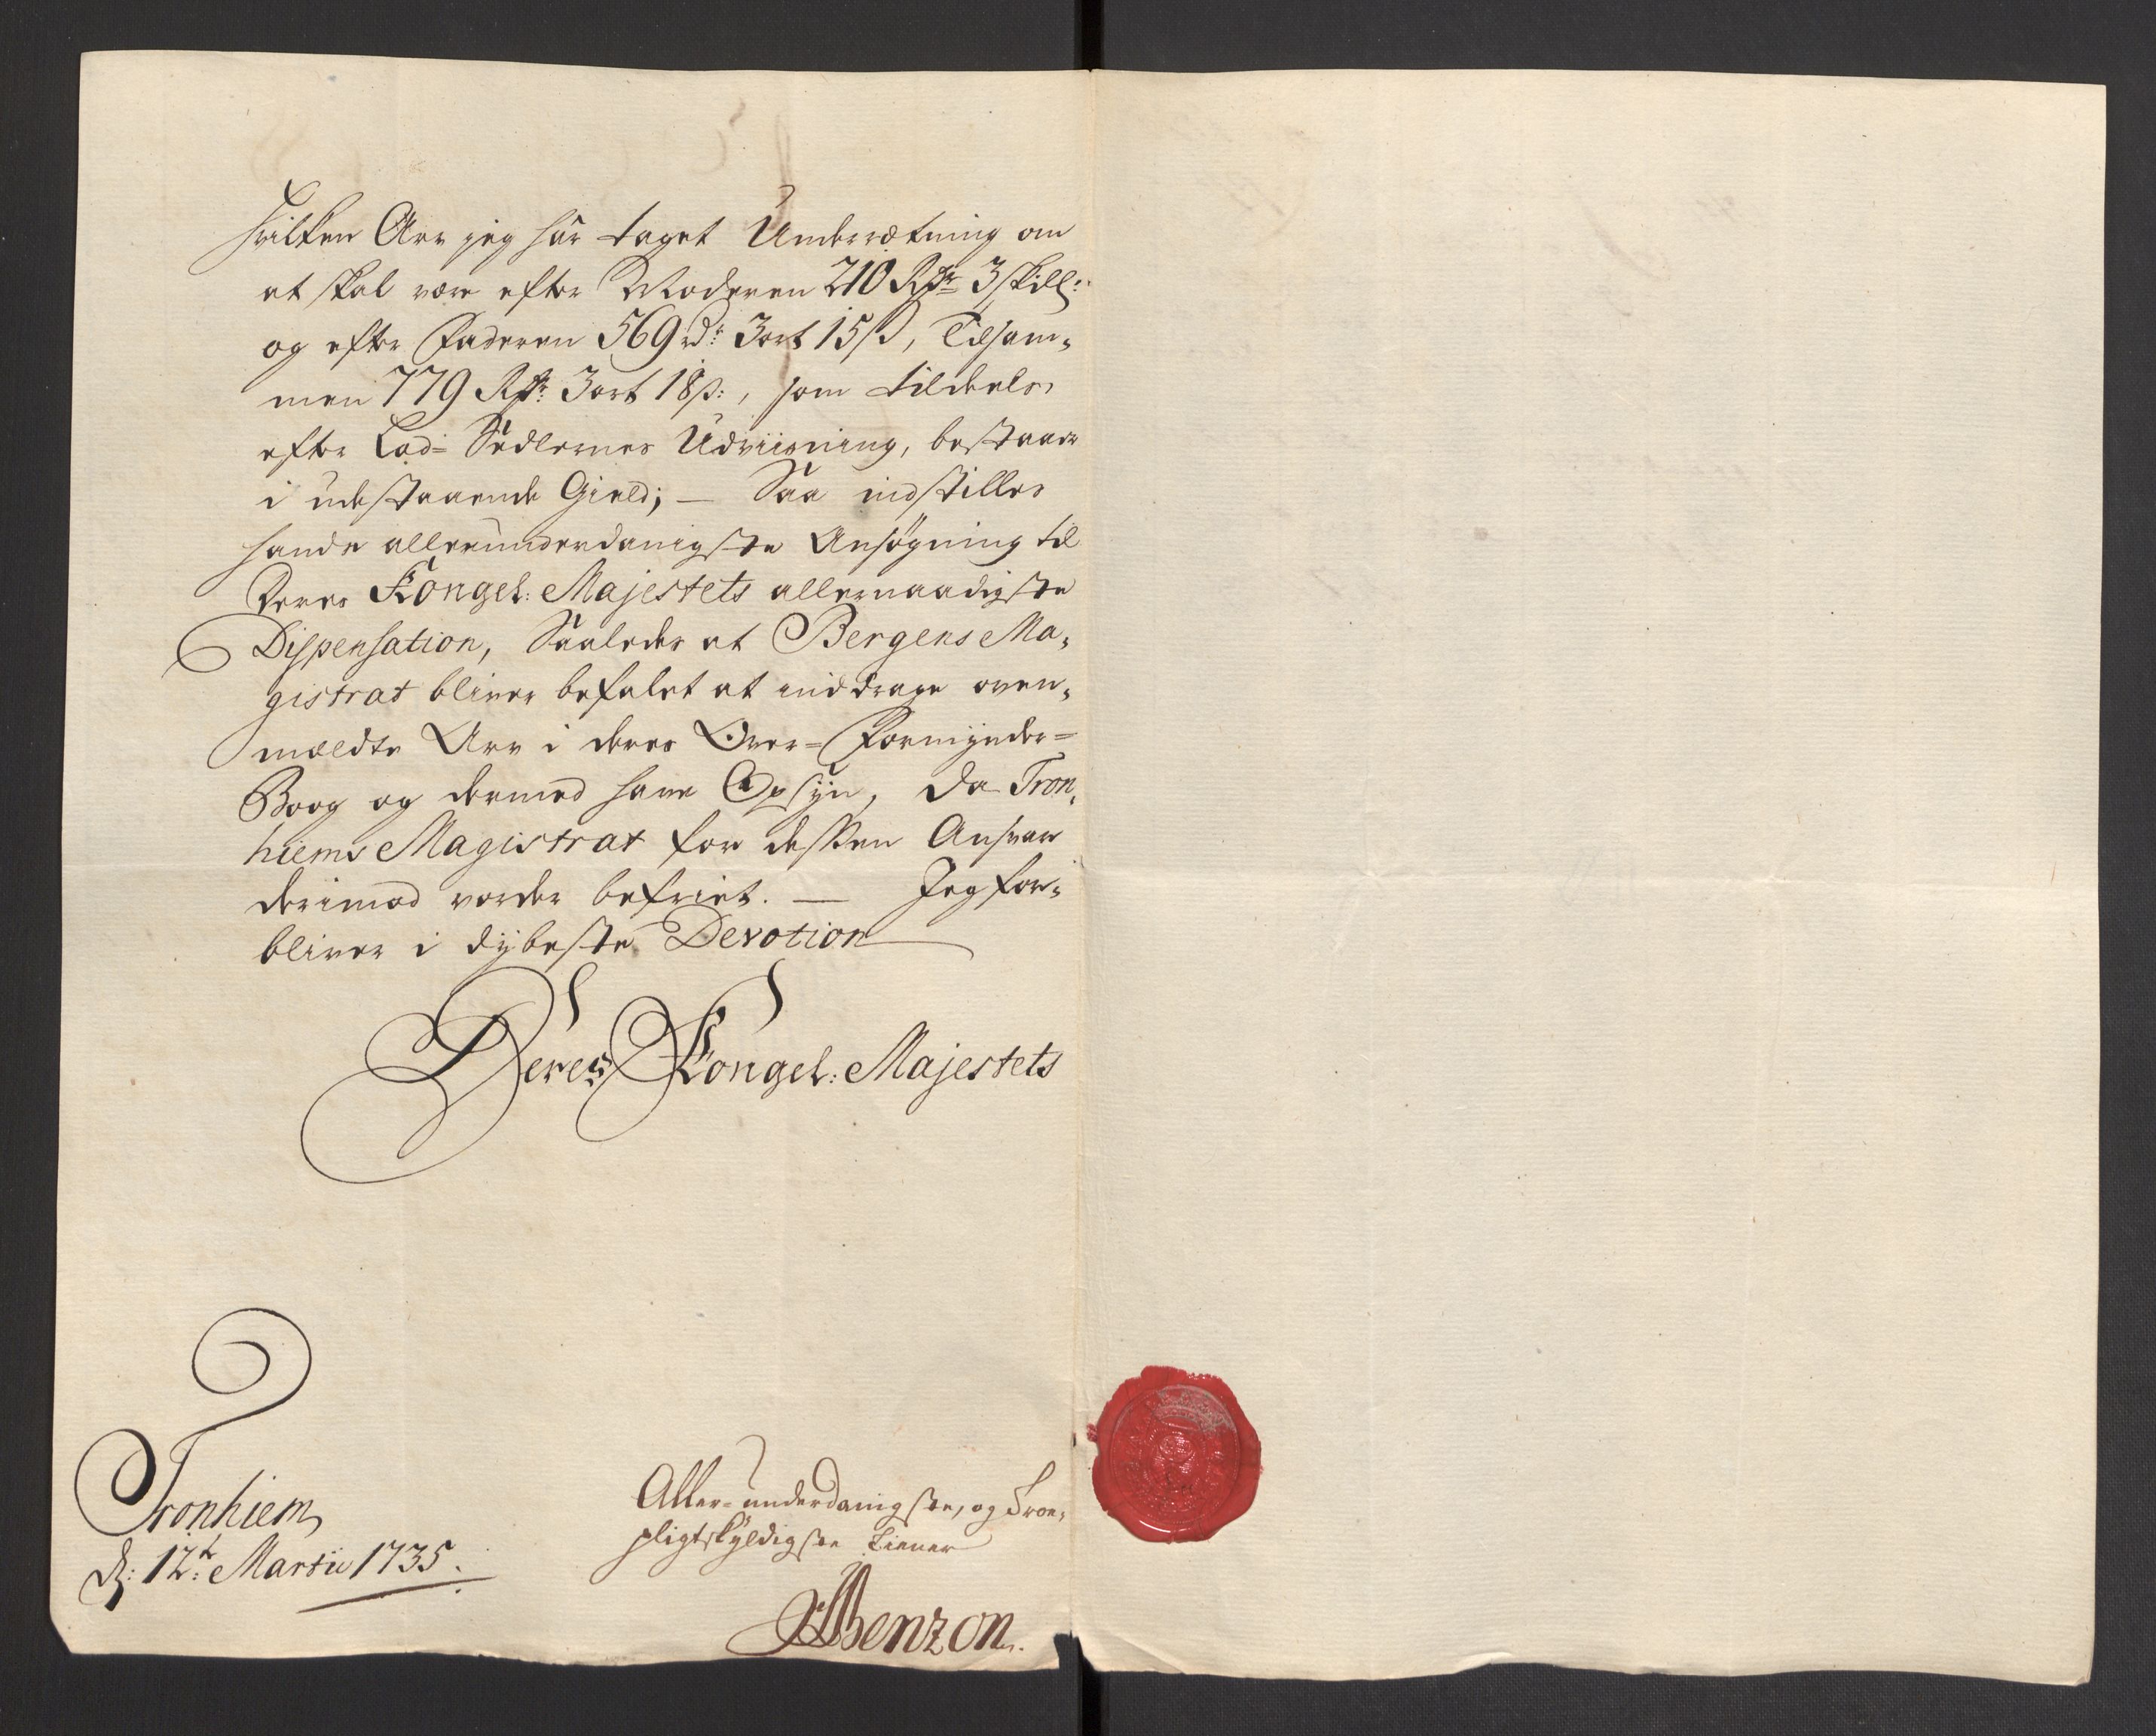 hvilken Arv jeg har taget Underrætning om
at skal være efter Moderen 210 Rdr 3 skill:
og efter Faderen 569 rdr: 3 ort 15 s, Tilsam-
men 779 Rdr: 3 ort 18 s:, som tildeels,
efter Lod-Sedlernes Udviisning, bestaar
i udestaaende Gield; — Saa indstilles
hands allerunderdanigste Ansøgning til
Deres Kongel: Majestets allernaadigste
Dispensation, Saaledes at Bergens Ma-
gistrat bliver befalet at inddrage oven-
meldte Arv i deres Over-Formynder-
Boog og dermed have Opsyn, da Tron-
hiems Magistrat for dessen Ansvar
derimod vorder befriet. — Jeg for-
bliver i dybeste Devotion
Deres Kongel: Majestets
Tronhiem
d: 12te Martii 1735.
Aller-underdanigste, og Troe-
pligtskyldigste Tiener
Benzon.